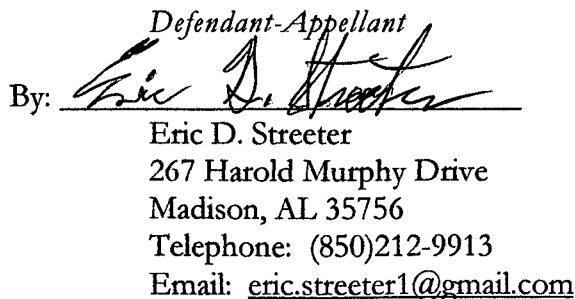 Defendant-Appellant
By: Eric D. Streeter
Eric D. Streeter
267 Harold Murphy Drive
Madison, AL 35756
Telephone: (850)212-9913
Email: eric.streeter1@gmail.com